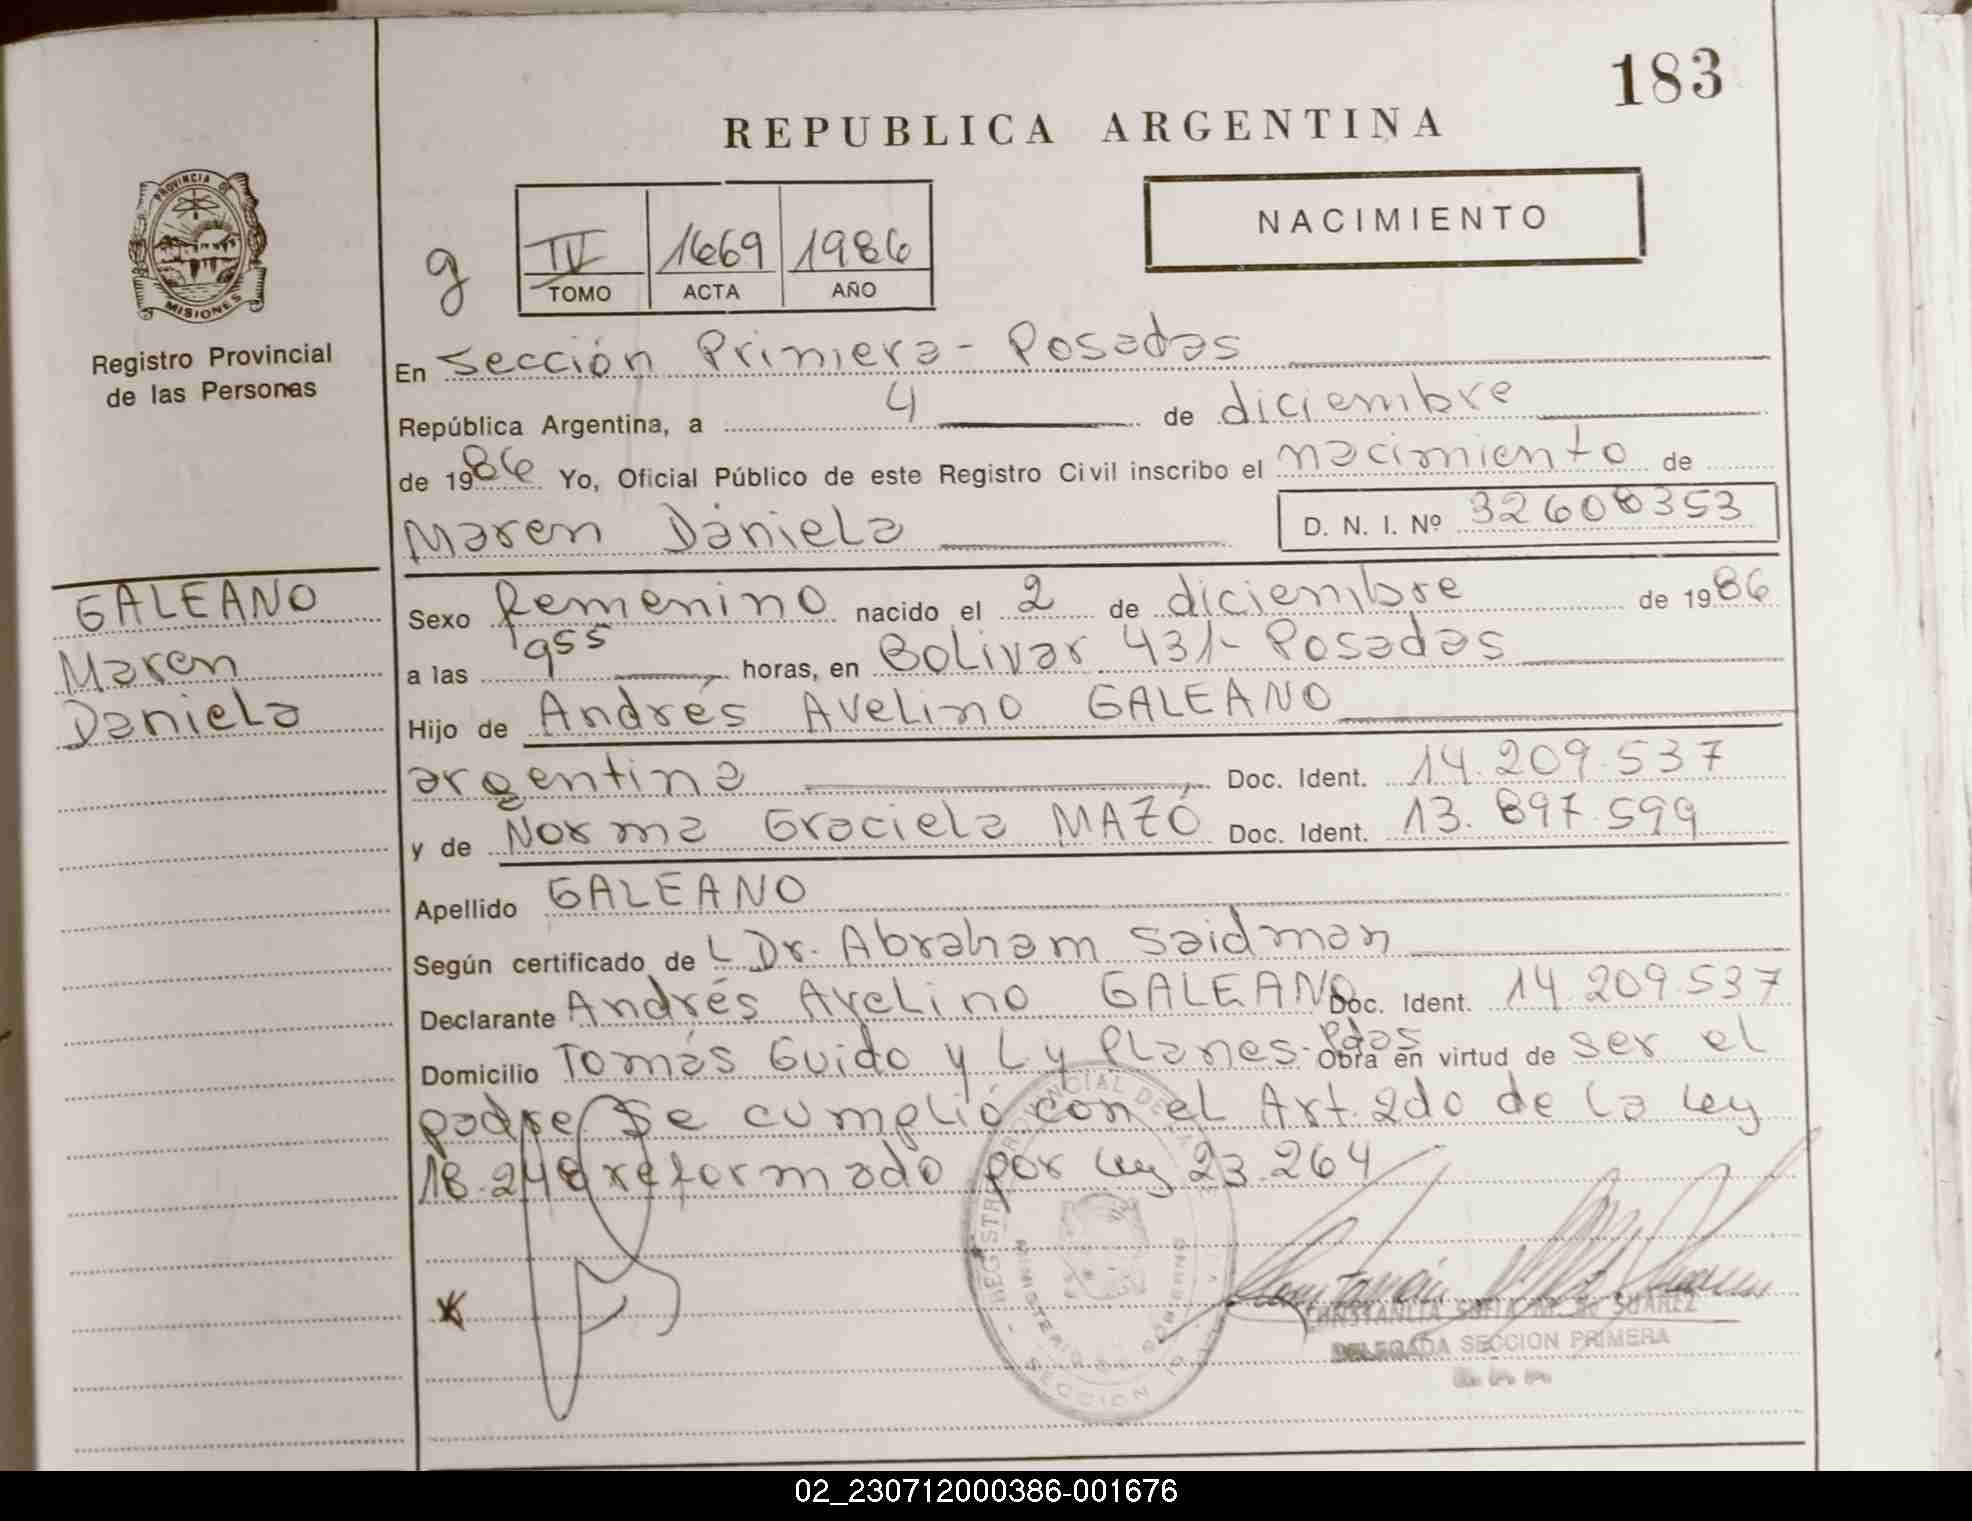 183
REPUBLICA ARGENTINA
NACIMIENTO
g
IV 1669 1986
TOMO ACTA AÑO
PROVINCIA DE
MISIONES
Registro Provincial
de las Personas
En Sección Primera - Posadas
República Argentina, a 4 de diciembre
de 1986 Yo, Oficial Público de este Registro Civil inscribo el nacimiento de
Maren Daniela D. N. I. Nº 32608353
GALEANO
Maren
Daniela
Sexo femenino nacido el 2 de diciembre de 1986
a las 955 horas, en Bolivar 431 - Posadas
Hijo de Andrés Avelino GALEANO
argentina Doc. Ident. 14.209.537
y de Norma Graciela MAZÓ Doc. Ident. 13.897.599
Apellido GALEANO
Según certificado de L Dr. Abraham Saidman
Declarante Andrés Avelino GALEANO Doc. Ident. 14.209.537
Domicilio Tomás Guido y L y Planes - Pdas Obra en virtud de ser el
padre Se cumplió con el Art. 2do de la Ley
18.248 reformado por Ley 23.264
MINISTERIO DE GOBIERNO
SECCION
CONSTANCIA SOFIA M. de SUAREZ
DELEGADA SECCION PRIMERA
02_230712000386-001676